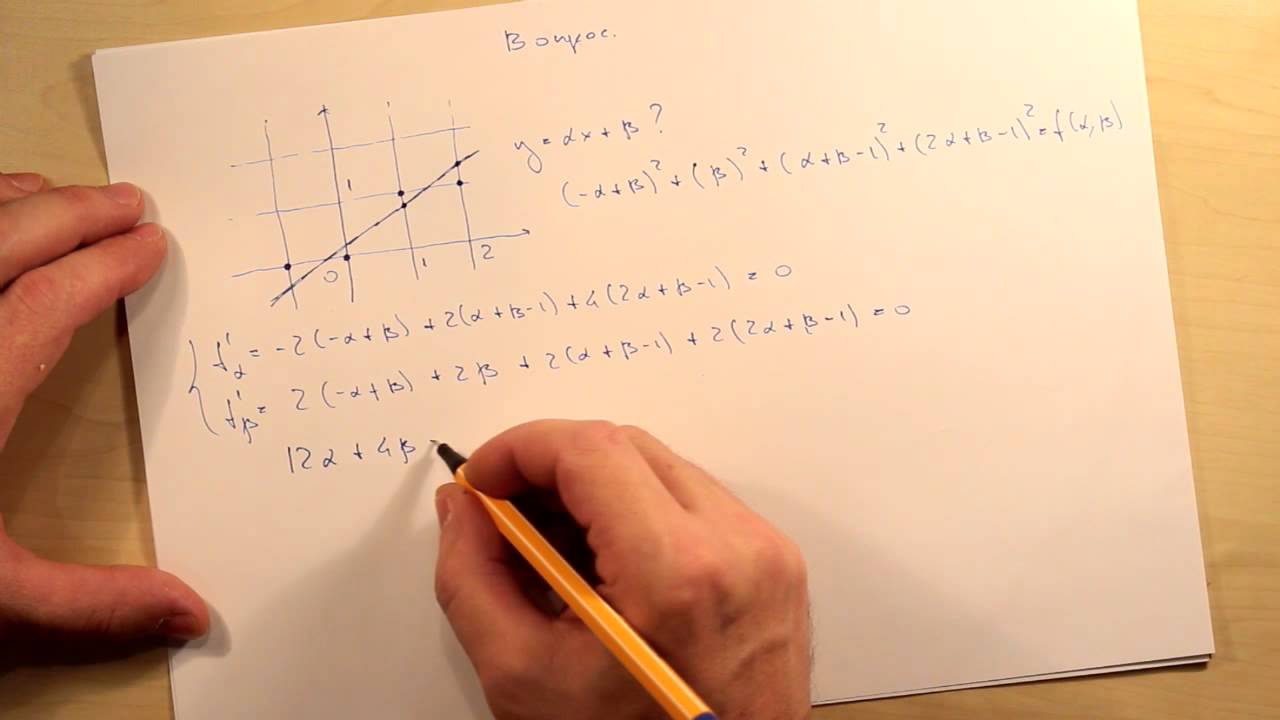 Вопрос.
y = αx + β ?
(-α+β)² + (β)² + (α+β-1)² + (2α+β-1)² = f(α, β)
1
0
1
2
f'α = -2(-α+β) + 2(α+β-1) + 4(2α+β-1) = 0
f'β = 2(-α+β) + 2β + 2(α+β-1) + 2(2α+β-1) = 0
12α + 4β